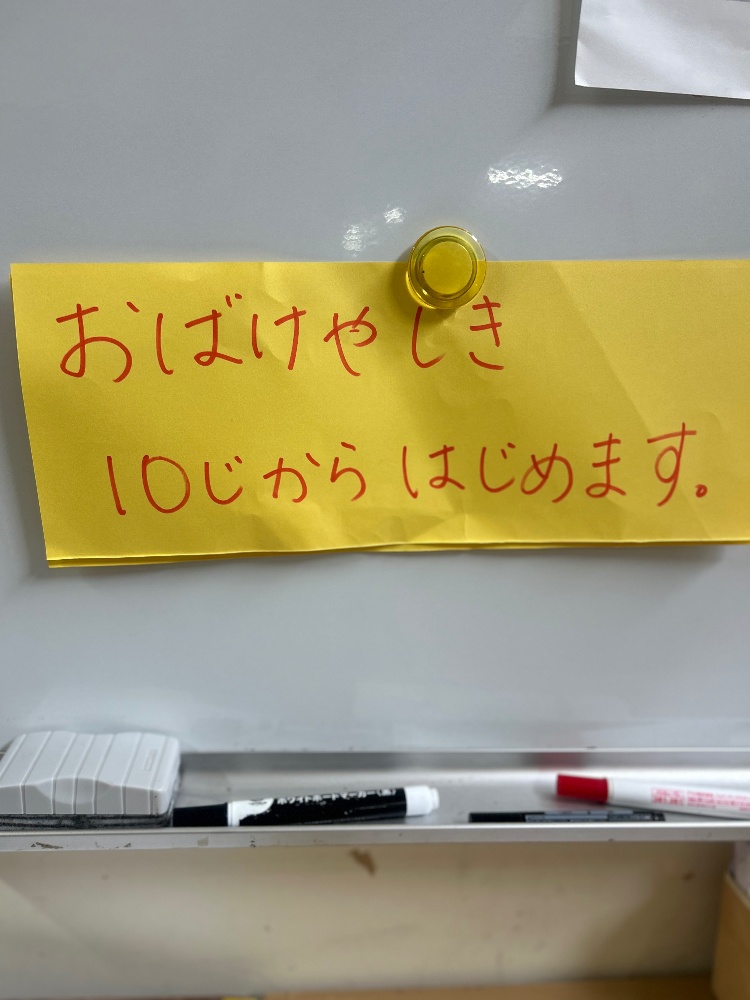 おばけやしき
10じから はじめます。
ホワイトボードマーカー